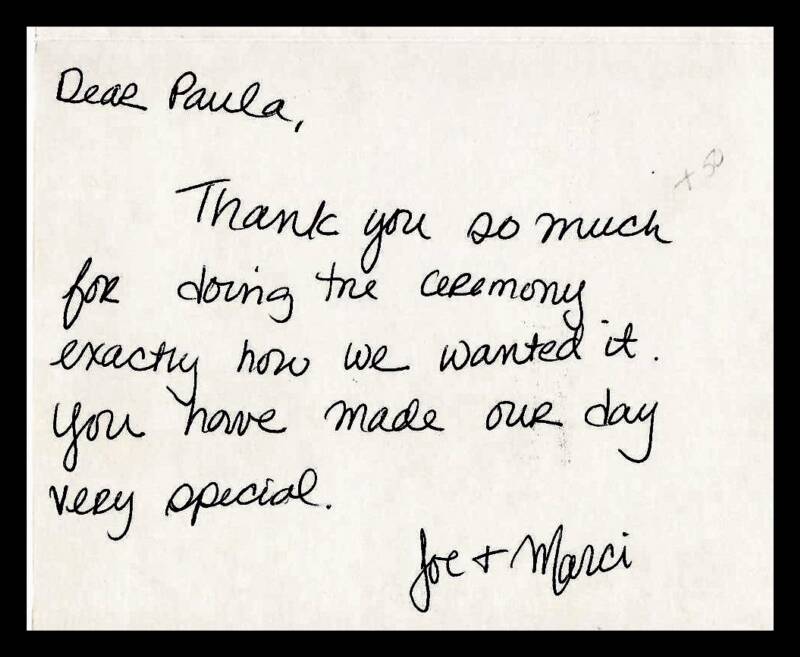 Dear Paula,
+ 50
Thank you so much
for doing the ceremony
exactly how we wanted it.
You have made our day
very special.
Joe + Marci